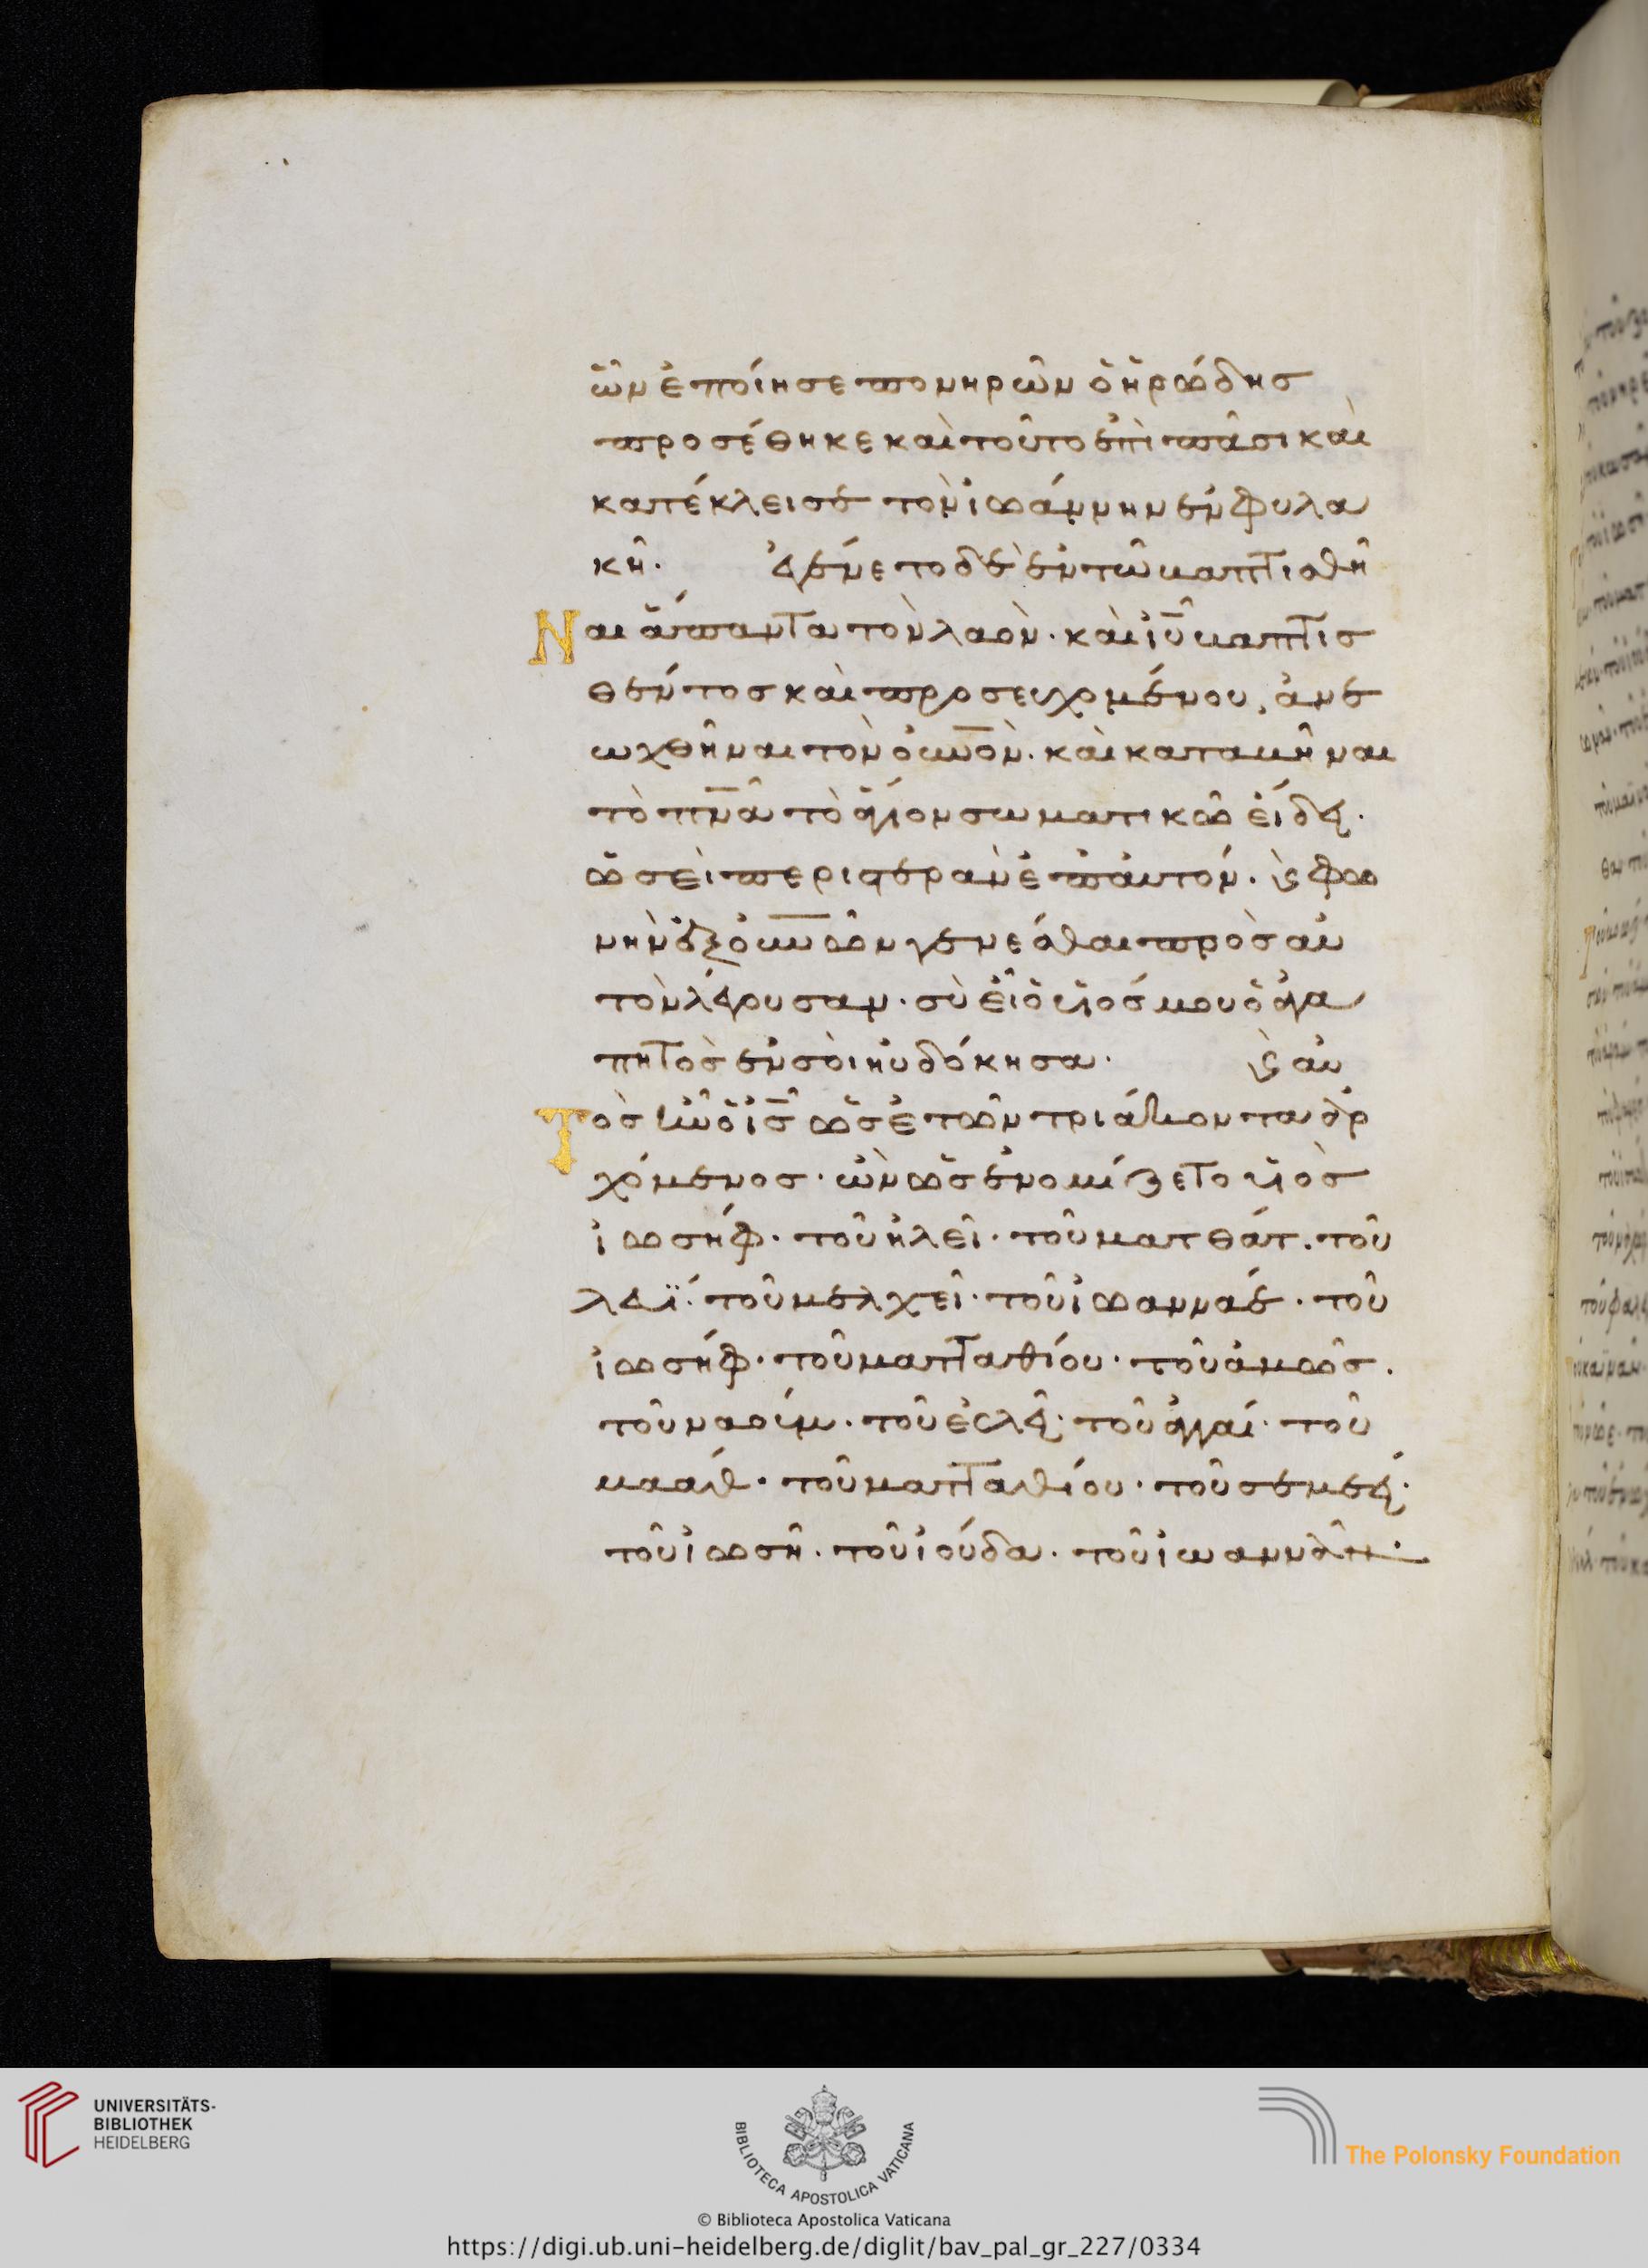 ὧν ἐποίησε πονηρῶν ὁ ἡρώδης
προσέθηκε καὶ τοῦτο ἐπὶ πᾶσι καὶ
κατέκλεισε τὸν ἰωάννην ἐν φυλα
κῆ. ἐγένετο δὲ ἐν τῶ βαπτισθῆ
Ναι ἅπαντα τὸν λαὸν. καὶ ἰῦ βαπτισ
θέντος καὶ προσευχομένου, ἀνε
ωχθῆναι τὸν οὐνὸν. καὶ καταβῆναι
τὸ πνᾶ τὸ ἅγιον σωματικῶ εἴδει.
ὡσεὶ περιστερὰν ἐπ' αὐτόν. ϗ φω
νὴν ἐξ οὐνῶν γενέσθαι πρὸς αὐ
τὸν λέγουσαν. σὺ εἶ ὁ υἱός μου ὁ ἀγα
πητὸς ἐν σοὶ ηὐδόκησα. ϗ αὐ
Τὸς ἦν ὁ ἰς ὡσεὶ ἐτῶν τριάκοντα ἀρ
χόμενος. ὢν ὡς ἐνομίζετο υἱὸς
ἰωσήφ. τοῦ ἠλεὶ. τοῦ ματθάτ. τοῦ
λευΐ. τοῦ μελχεὶ. τοῦ ἰωαννάε. τοῦ
ἰωσήφ. τοῦ ματταθίου. τοῦ ἀμῶς.
τοῦ ναούμ. τοῦ ἐσλεὶ. τοῦ ἀγγαί. τοῦ
μαάθ. τοῦ ματταθίου. τοῦ σεμεεί.
τοῦ ἰωσὴ. τοῦ ἰούδα. τοῦ ἰωαννὰν.
UNIVERSITÄTS-
BIBLIOTHEK
HEIDELBERG
BIBLIOTECA APOSTOLICA VATICANA
The Polonsky Foundation
© Biblioteca Apostolica Vaticana
https://digi.ub.uni-heidelberg.de/diglit/bav_pal_gr_227/0334